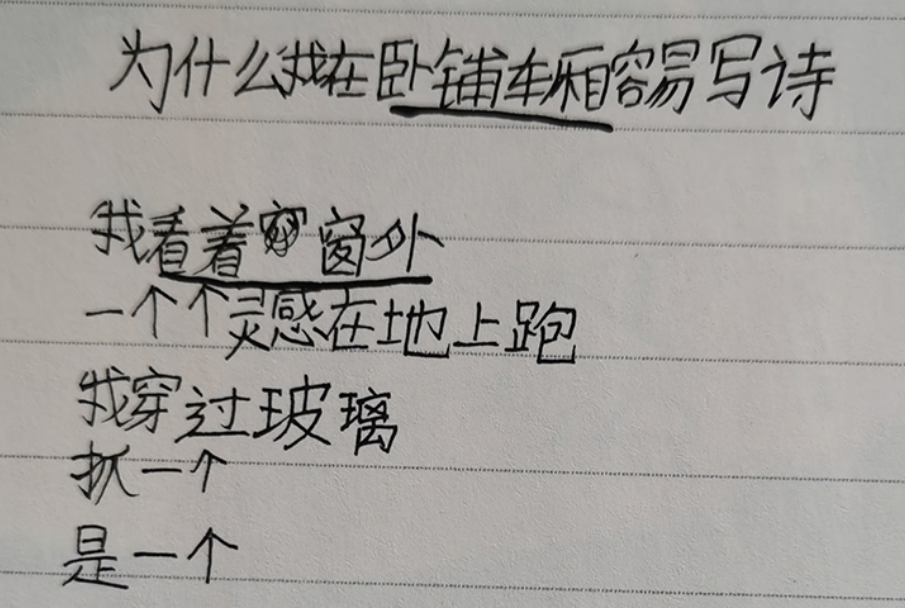 为什么我在卧铺车厢容易写诗
我看着窗外
一个个灵感在地上跑
我穿过玻璃
抓一个
是一个